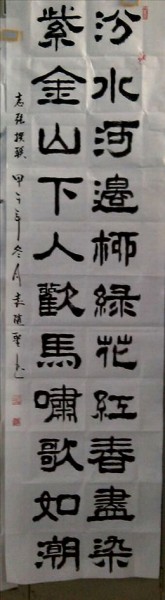 汾水河邊柳綠花紅春盡染
紫金山下人歡馬嘯歌如潮
志強撰联 甲午年冬月